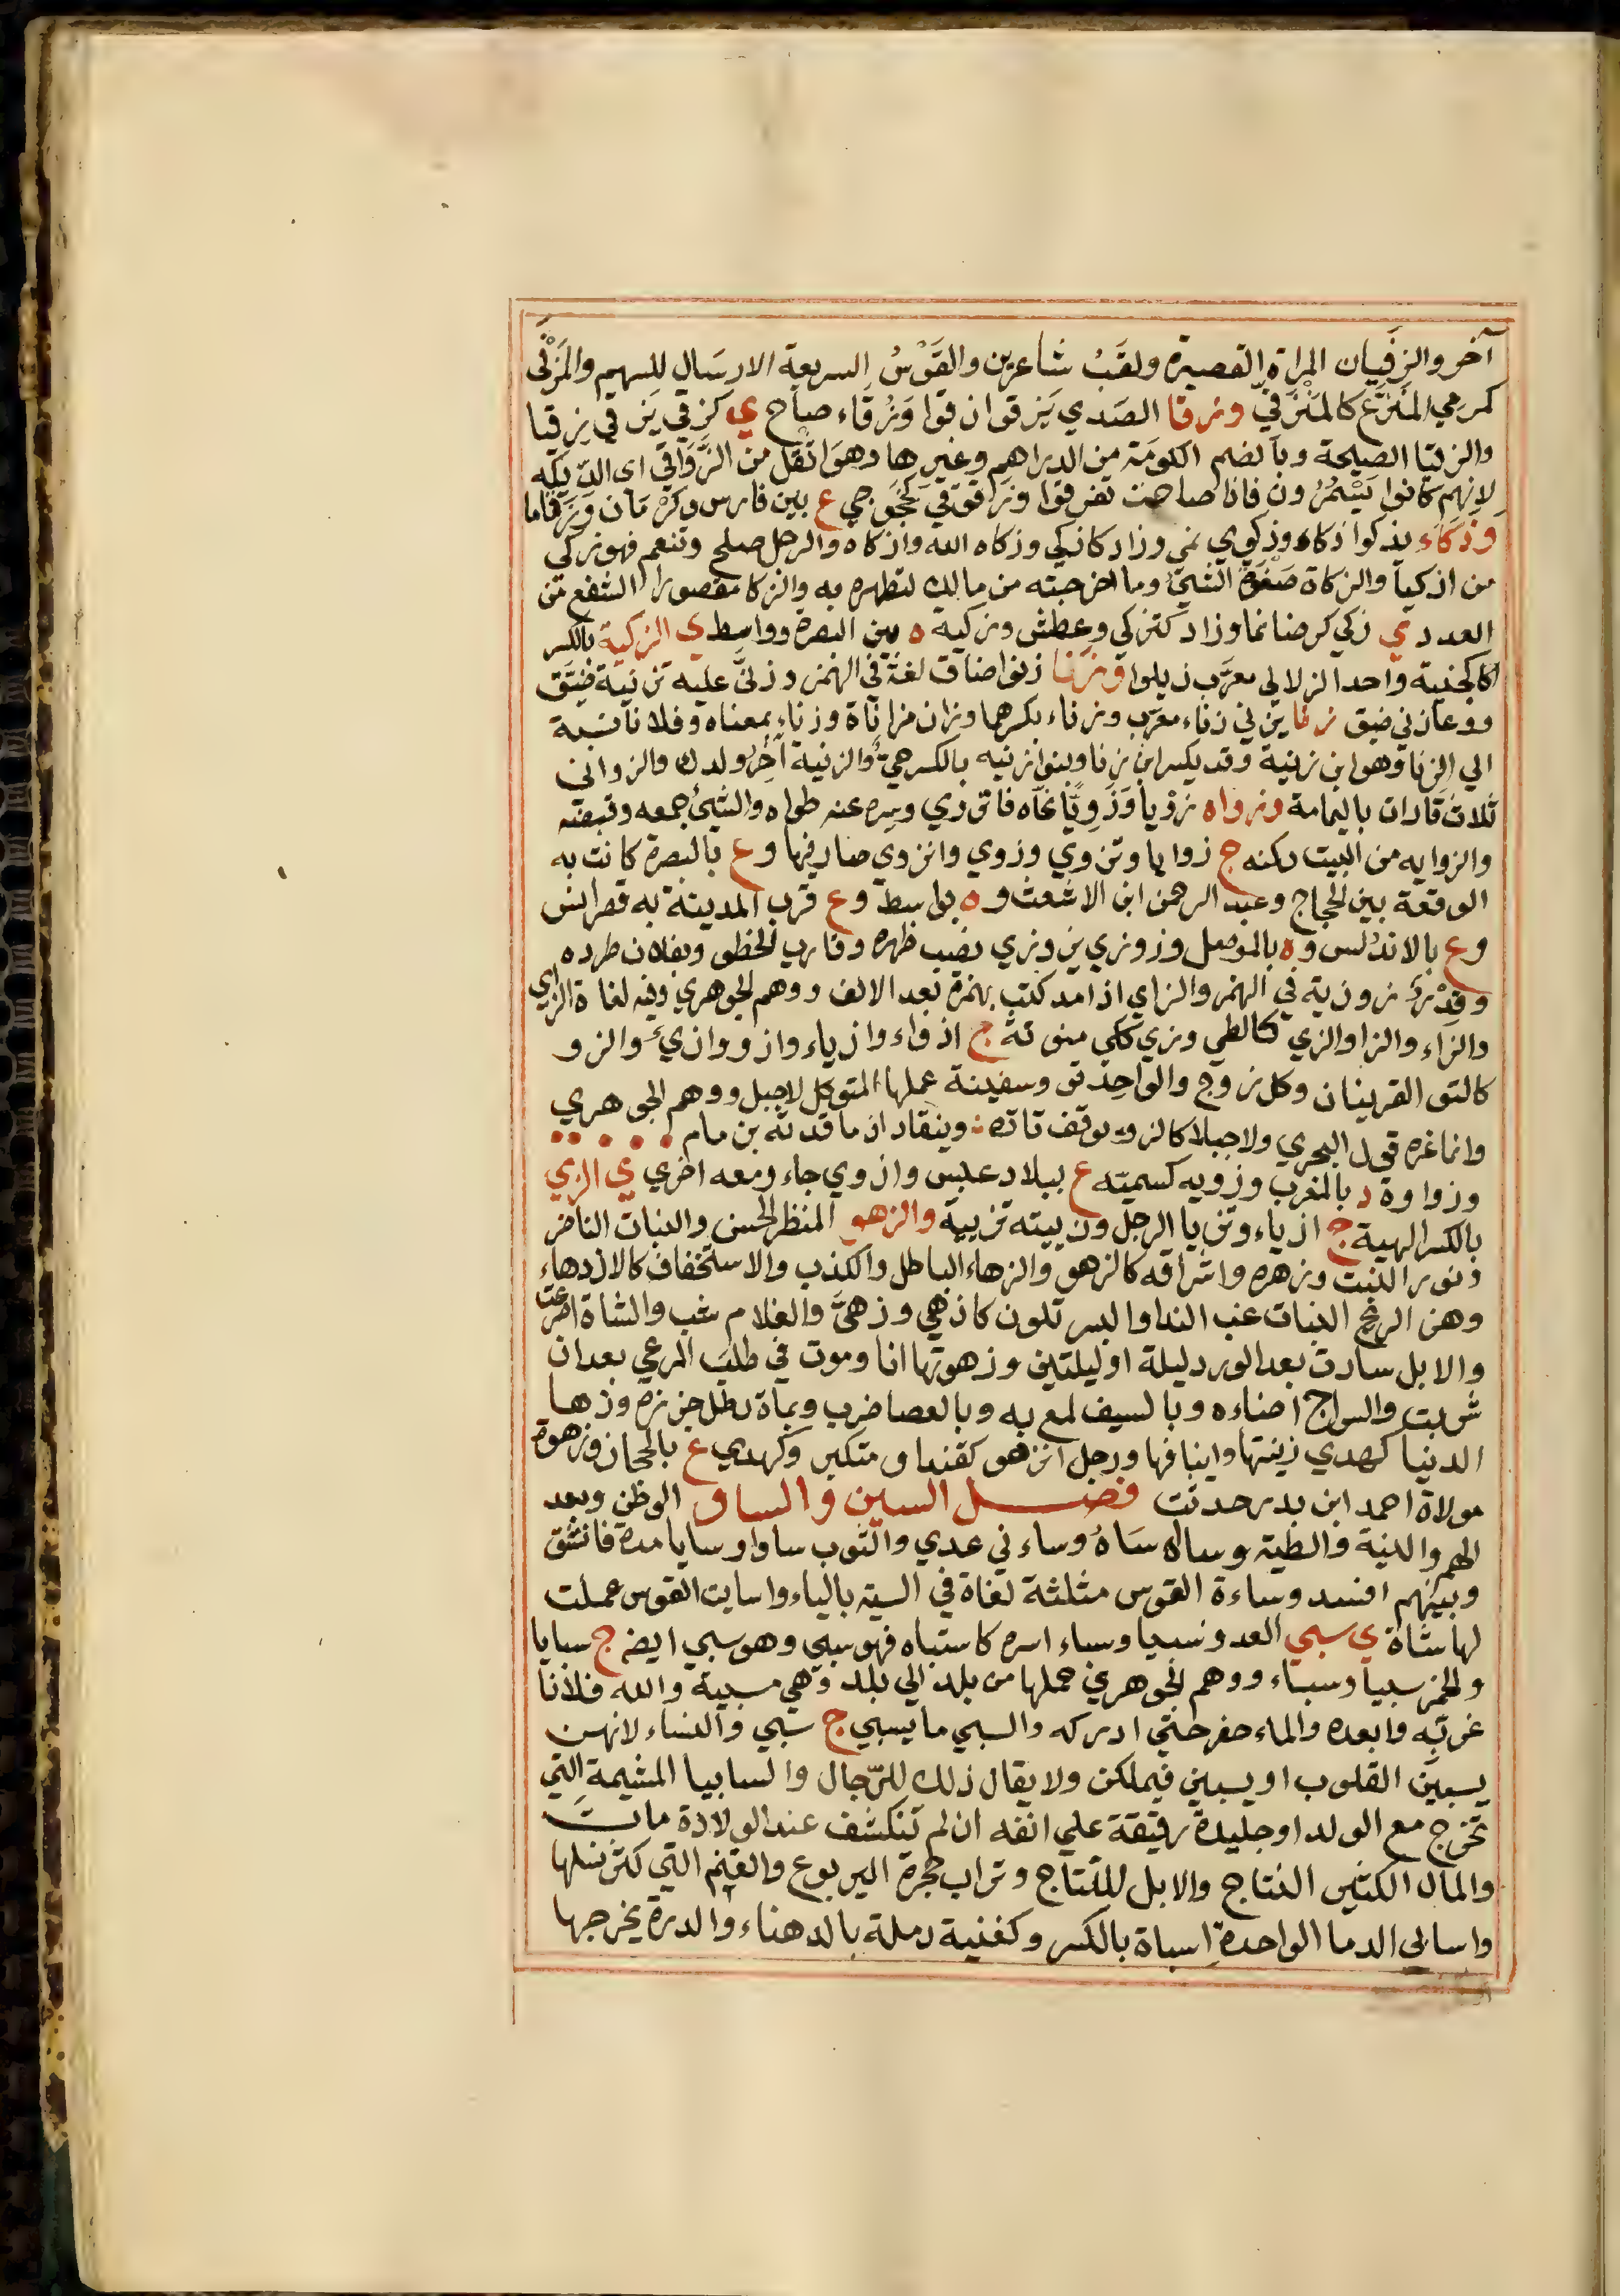 آخر والزفيان المراة القصيرة ولقَبُ شاعرين والقَوْسُ السريعة الارسَال للسهم والمَزْفي
كمرمي المفزَّع كالمنزَفيّ وزقا الصَدي يَزقوا زقوا وَزُقَاء صاح ي كزقي يَزقي زقيا
والزقيا الصيحة وبالضم الكومَة من الدراهم وغيرها وهوَ اثقل من الزَّوَاقي اى الديَكه
لانهم كانوا يَسْمُرُون فاذا صاحت تفرقوا وزقوقي كخجوجي ع بين فارس وكرْمَان
وزكَاء يزكوا زكاء وزكوي نمي وزاد كازكي وزكاه الله وازكاه والرجل صلح وتنعم فهو زكي
من ازكيا والزكاة صَفوَة الشيئ وما اخرجته من مالك لتطهره به والزكا مقصورا الشفع من
العدد ي زكي كرضا نما وزاد كتزكي وعطش وزكيه ه بين البصرة وواسِط ي الزكية بالكسر
كالجنية واحد الزلالي معرَّب زيلوا وزنا زنوا ضاق لغة في الهمز وزنّي عليه تزنية ضيَّق
ووعا زني ضيق زنا يزني زناء معرب وزناء بكسرهما وزان مزاناة وزناء بمعناه وفلانا نسبه
الي الزنا وهو ابن زنية وقد يكسر ابن زنا وبنوا زنيه بالكسر حيٌ والزنية آخِرُ ولدك والزواني
ثلاث قارات باليمامة وزواه زويا وَزَوِيًّا نحّاه فانزوي وسره عنه طواه والشيئ جمعه وقبضه
والزوايه من البيت ركنه ج زوايا وتزوي وزوي وانزوي صار فيها وع بالبصرة كانت به
الوقعة بين الحجاج وعبد الرحمن ابن الاشعث وه بواسط وع قرب المدينة به قصر انس
وع بالاندلس وه بالموصل وزوزي يزوزي نصب ظهره وقارب الخطو وبفلان طرده
وقدْرٌ زوزية في الهمز والزاي اذا مد كتب بهمزة بعد الالف ووهم الجوهري وفيه لغاة الزاي
والزاء والزا والزي كالطي وزي ككي منونة ج ازواء وازياء وازو وازيءٌ والزو
كالتو القرينان وكل زوج والواحد تو وسفينة عملها المتوكل لاجبل ووهم الجوهري
وانما غره قول البحري ولاجبلا كالزو يوقف تاته وينقاد اذ ما قدته بزمام
وزواوة د بالمغرب وزويه كسميّه ع ببلاد عبس وازوي جاء ومعه اخري ي الزي
بالكسر الهية ج ازياء وتزيا الرجل وزييته تزيية والزهو المنظر الحسن والنبات الناضر
ونور النبت وزهره واشراقه كالزهو والزهاء الباطل والكذب والاستخفاف كالازدهاء
وهز الريح النبات غب الندا والبسر تلون كازهي وزهيَّ والغلام شب والشاة اضرعت
والابل سارت بعد الورد ليلة او ليلتين وزهوتها انا وموت في طلب المرعي بعد ان
شربت والسراج اضاءه وبالسيف لمع به وبالعصا ضرب وبماة رطل حزره وزها
الدنيا كهدي زينتها واينافها ورجل انزهو كقنداو متكبر وكهدي ع بالحجاز وزهوة
مولاة احمد ابن بدر حدثت فصل السين و الساو الوطن وبعد
الهم والنية والظنة وساله سَاهُ وساء ني عدي والثوب ساوا وسايا مده فانشق
وبينهم افسد وساءة القوس مثلثة لغاة في السيه بالياء واسايت القوس عملت
لها ساة ي سبي العدو سبيا وسباء اسره كاستباه فهو سبي وهو سبي ايضا ج سبايا
والخمر سبيا وسباء ووهم الجوهري حملها من بلد الي بلد وهي سبية والله فلانا
غربه وابعده والماء حفر حتي ادركه والسبي ما يسبي ج سُبي والنساء لانهن
يسبين القلوب او يسبين فيملكن ولا يقال ذلك للرّجال والسابيا المشيمة التي
تخرج مع الولد او جليدة رقيقة علي انفه ان لم تنكشف عند الولادة مات
والمال الكثير النتاج والابل للنتاج وتراب حجرة اليربوع والغنم التي كثر نسلها
واسابي الدما الواحدة اسباة بالكسر وكغنية رملة بالدهناء والدرة يخرجها